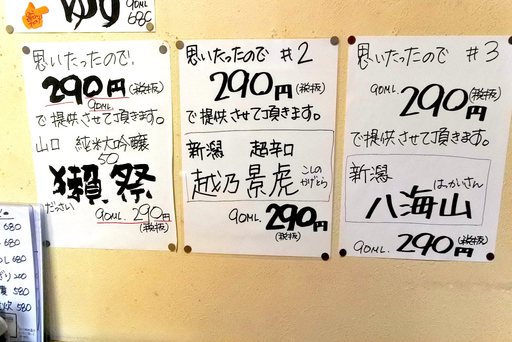 ゆり 90ML 680
思いたったので
290円(税抜)
90ML.
で提供させて頂きます。
山口 純米大吟醸
50
獺祭
だっさい
90ML. 290円
(税抜)
思いたったので #2
290円(税抜)
で提供させて頂きます。
新潟 超辛口
越乃景虎 こしの
かげとら
90ML. 290円
(税抜)
思いたったので #3
90ML. 290円(税抜)
で提供させて頂きます。
新潟
はっかいさん
八海山
90ML. 290円(税抜)
680
680
し 680
ぎり 200
580
炊 580